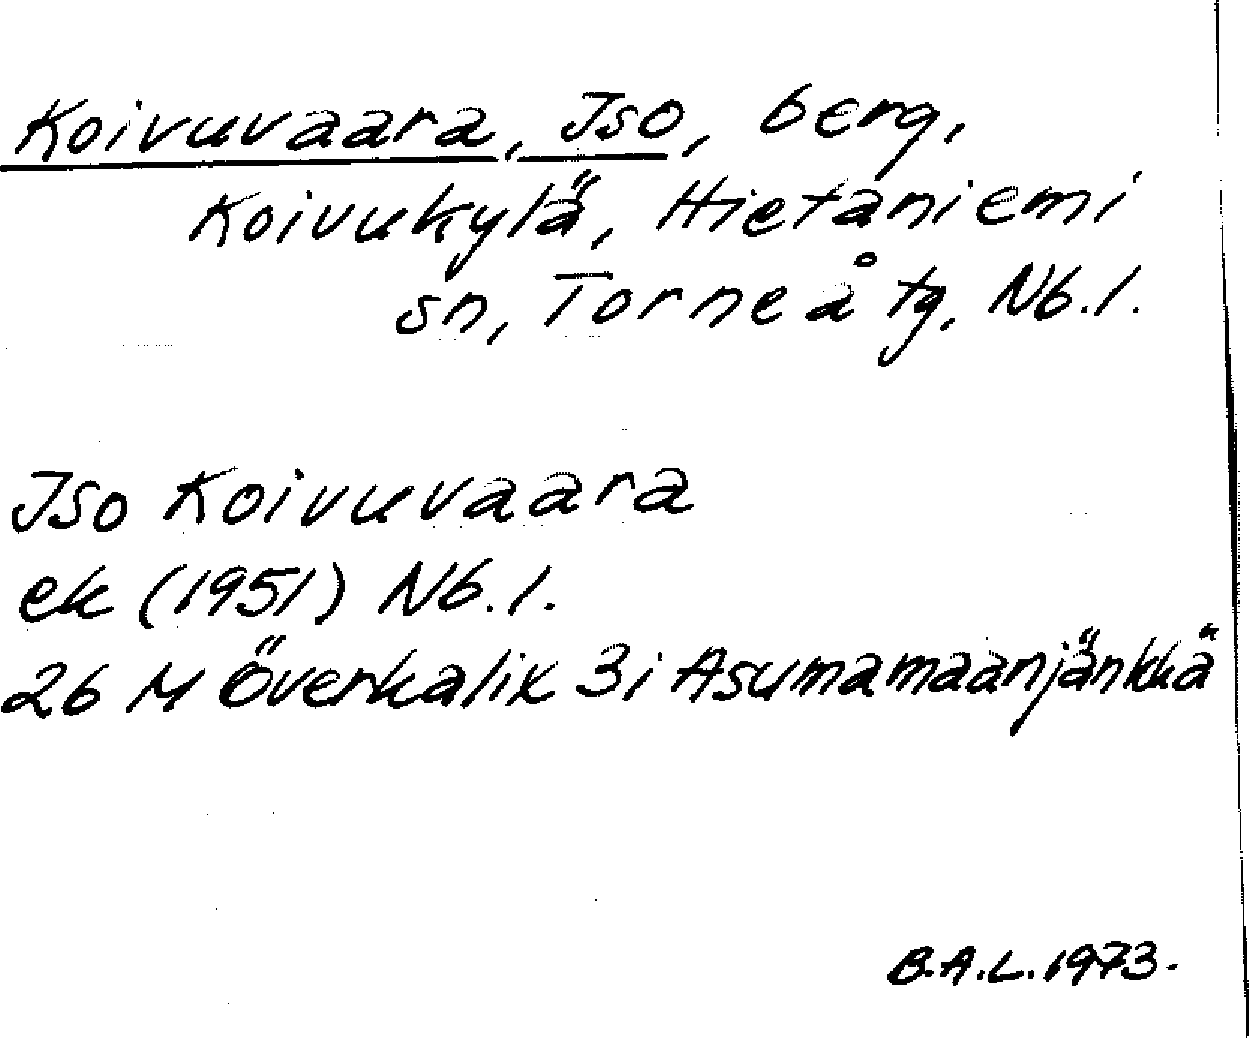 Koivuvaara, Iso, berg,
Koivukylä, Hietaniemi
sn, Torneå tg, Nb. l.
Iso Koivuvaara
ek (1951) Nb. l.
26 M Överkalix 3i Asumamaanjänkkä
B.A.L. 1973.